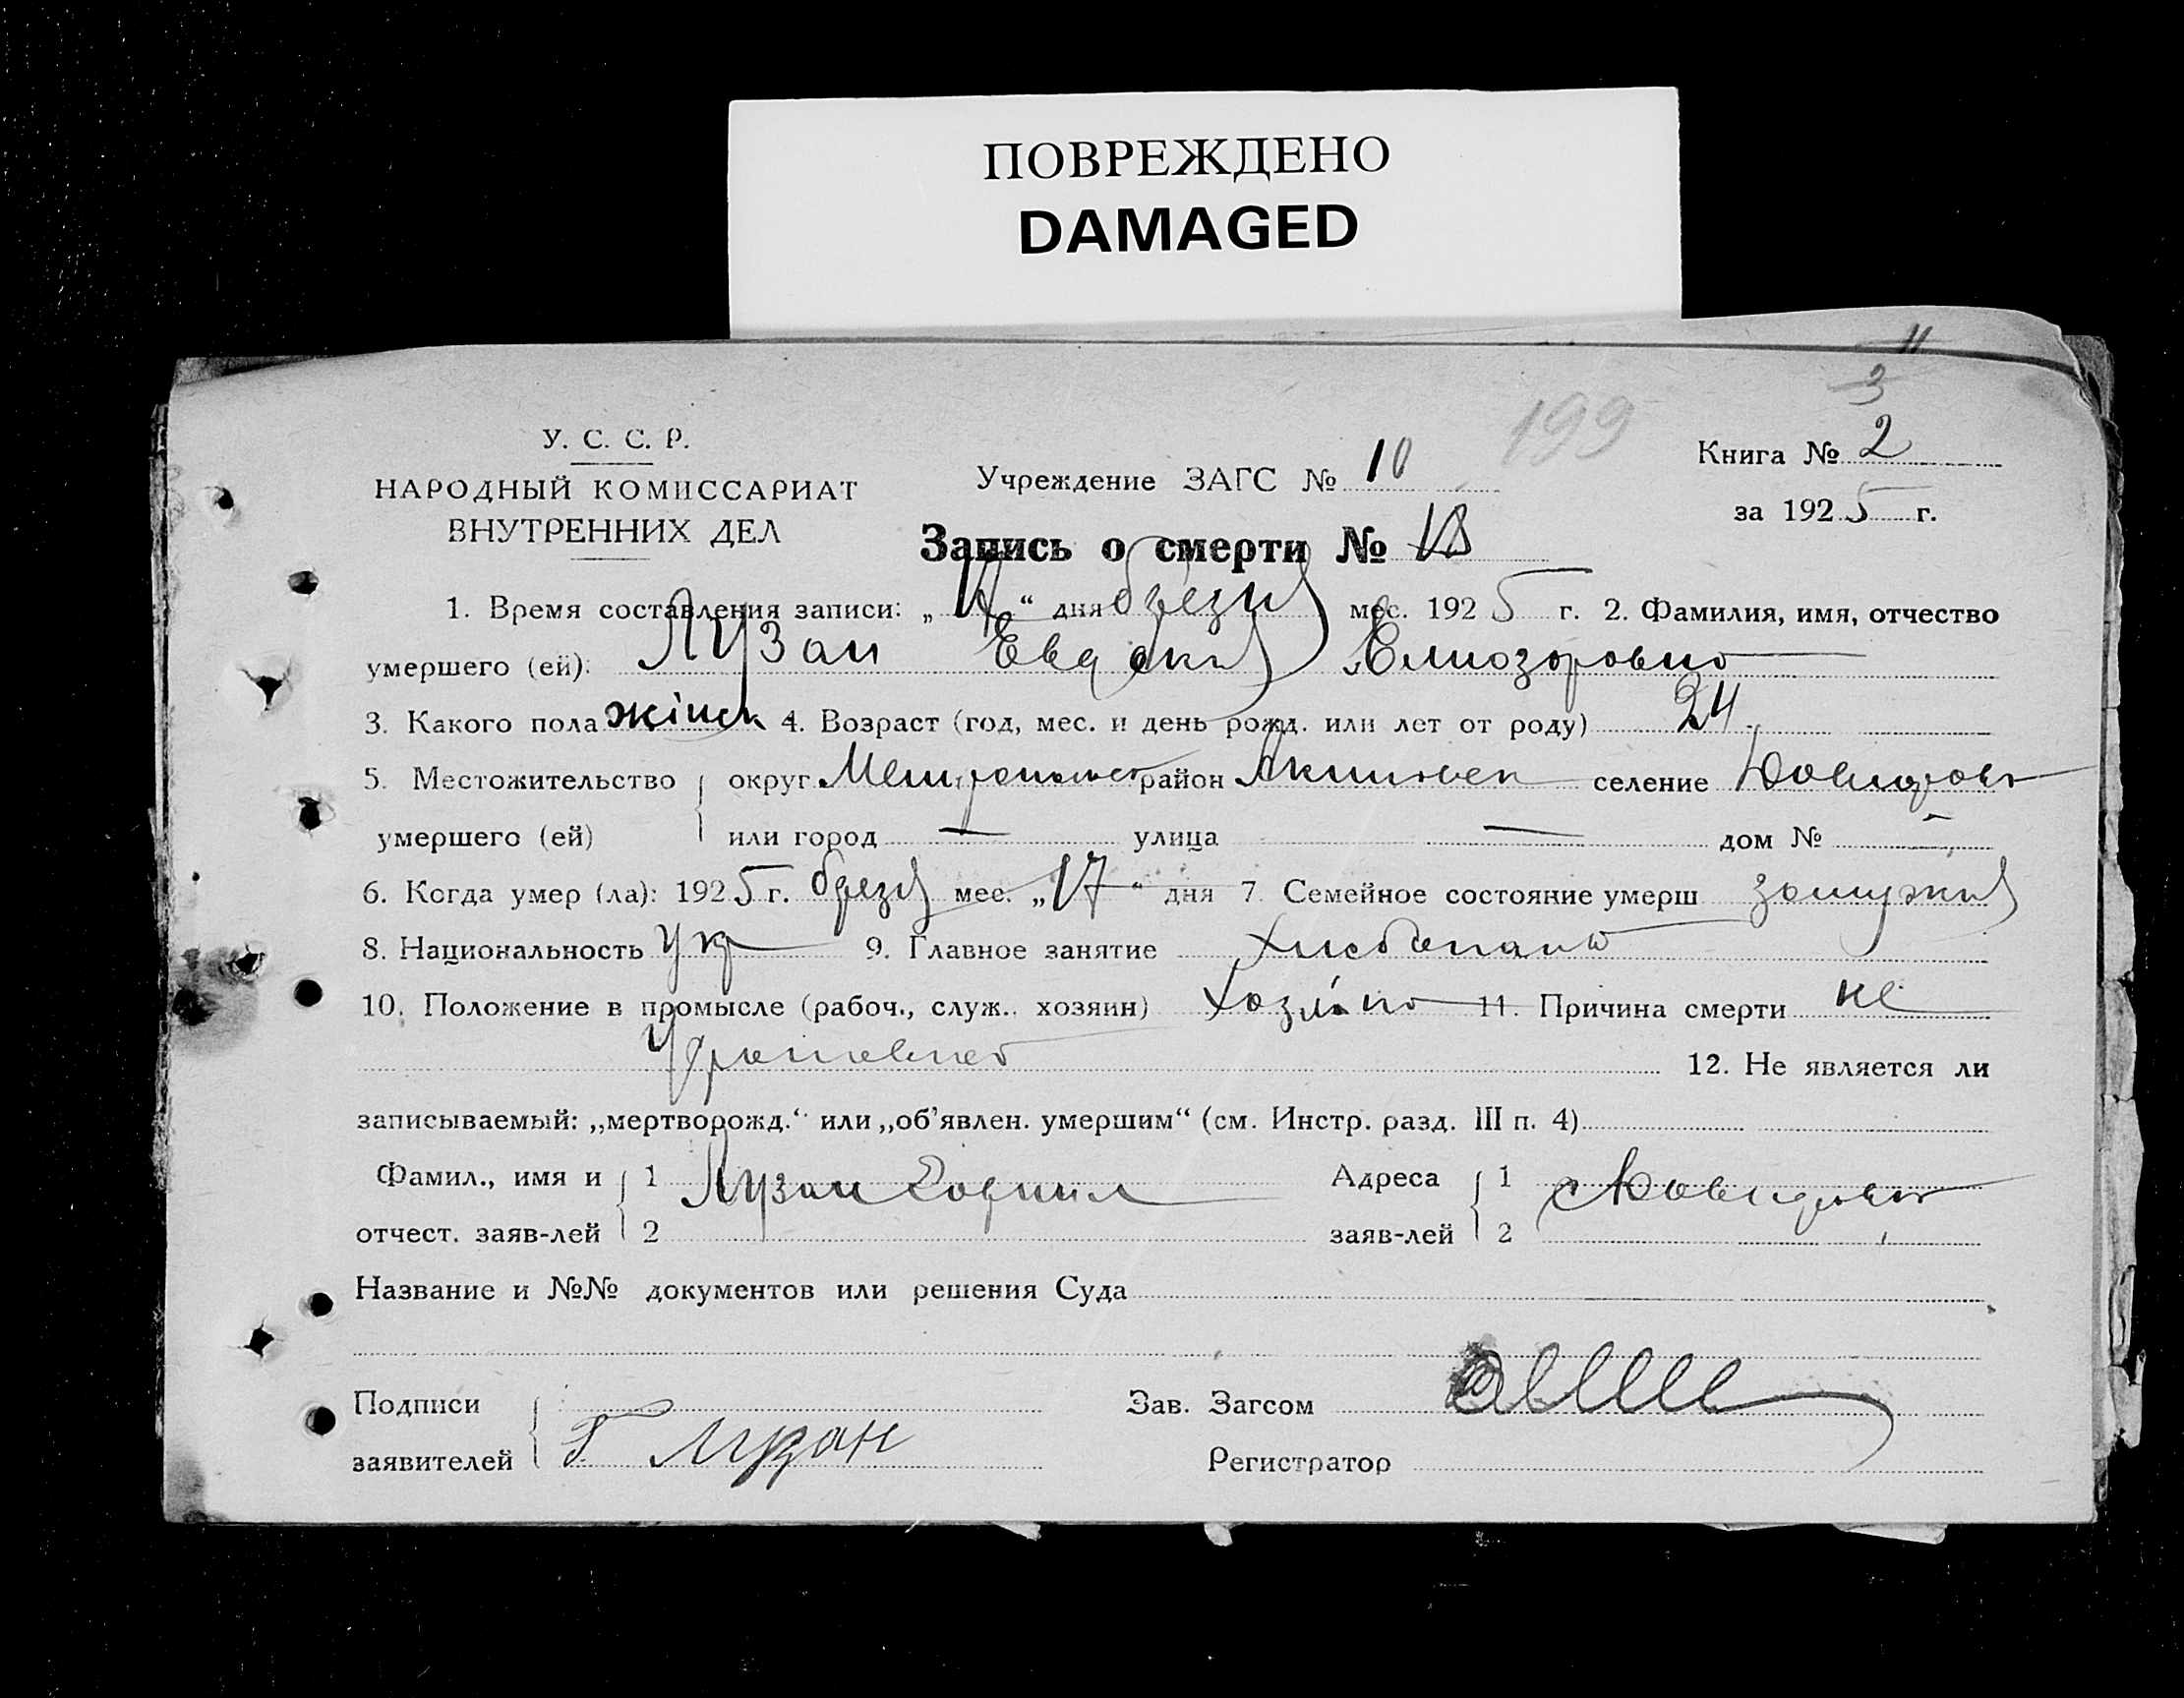 ПОВРЕЖДЕНО
DAMAGED
11
3
У. С. С. Р.
НАРОДНЫЙ КОМИССАРИАТ
ВНУТРЕННИХ ДЕЛ
199
Учреждение ЗАГС № 10
Книга № 2
за 1925 г.
Запись о смерти №
1. Время составления записи: „ “ дня мес. 1925 г. 2. Фамилия, имя, отчество
умершего (ей): Лузан
3. Какого пола жінск 4. Возраст (год, мес. и день рожд. или лет от роду) 24
5. Местожительство округ район селение
умершего (ей) или город — улица — дом № —
6. Когда умер (ла): 1925 г. мес. „17“ дня 7. Семейное состояние умерш замужня
8. Национальность Укр 9. Главное занятие
10. Положение в промысле (рабоч., служ., хозяин) 11. Причина смерти не
12. Не является ли
записываемый: „мертворожд.“ или „об’явлен. умершим“ (см. Инстр. разд. III п. 4)
Фамил., имя и 1 Лузан Адреса 1
отчест. заяв-лей 2 заяв-лей 2
Название и №№ документов или решения Суда
Подписи Зав. Загсом
заявителей Г Лузан Регистратор